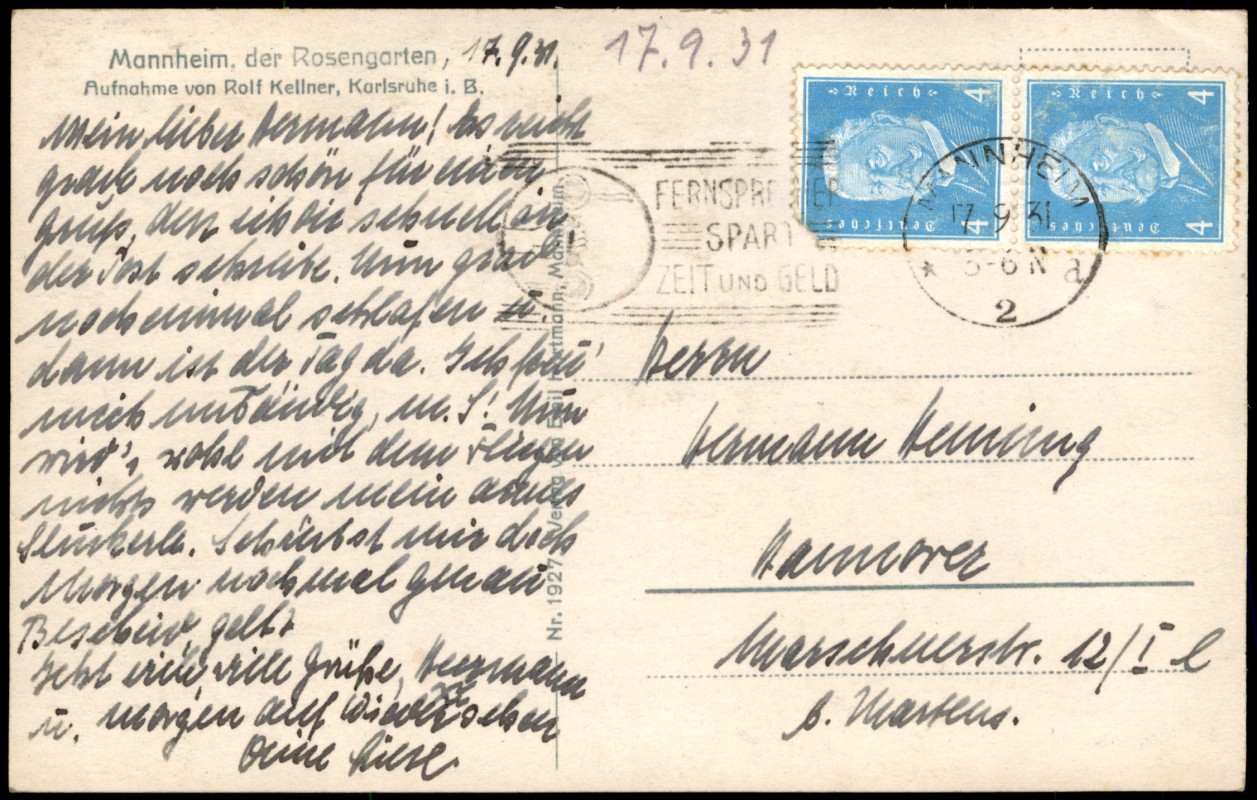 Mannheim, der Rosengarten, 17.9.31.
Aufnahme von Rolf Kellner, Karlsruhe i. B.
17.9.31
Mein lieber Hermann! Es reicht
grade noch schön für einen
gruß, den ich dir schnell in
der Post schreibe. Nun
noch einmal schlafen u.
dann ist der Tag da. Ich freu'
mich unbändig, m. S! Nun
wird's wohl mit dem Fliegen
nichts werden mein armes
Schreibst mir doch
Morgen nochmal genau
Bescheid, gelt?
Jetzt viele Grüße, Hermann
u. morgen auf Wiedersehen
Deine Liese
Nr. 1927 Verlag von Emil Hartmann, Mannheim
FERNSPRECHER
SPART
ZEIT UND GELD
Deutsches Reich 4 4
Deutsches Reich 4 4
MANNHEIM
17.9.31
5-6 N
* 2 a
Herrn
Hermann Henning
Hannover
Marschnerstr. 12/I l
b. Martens.